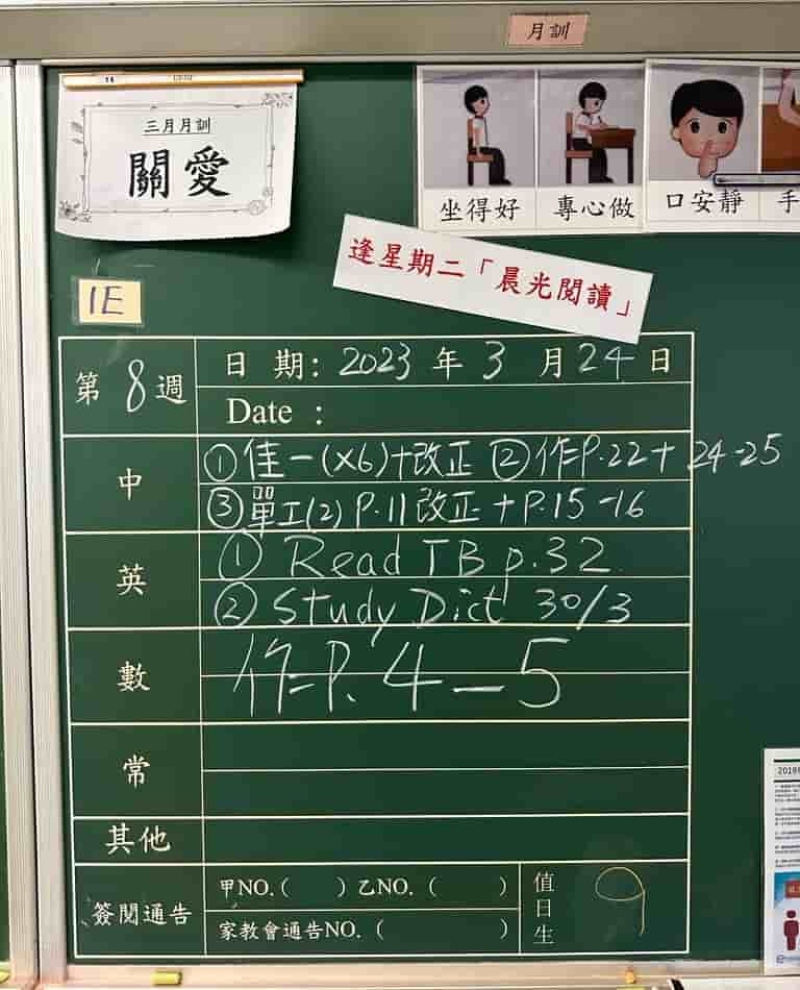 月訓
三月月訓
關愛
坐得好
專心做
口安靜
手
逢星期二「晨光閱讀」
1E
第8週
日期: 2023年3月24日
Date :
中
①佳一(x6)+改正 ②作P.22+24-25
③單工(2) P.11改正+P.15-16
英
① Read TB p.32
② Study Dict 30/3
數
作P.4-5
常
其他
簽閱通告
甲NO.( ) 乙NO. ( )
家教會通告NO. ( )
值日生
9